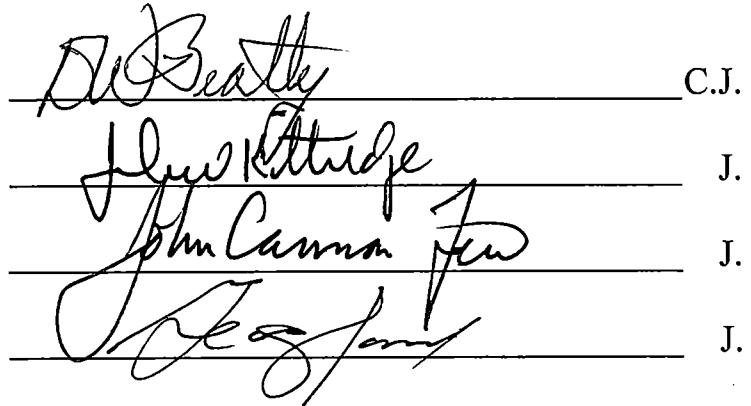 DW Beatty C.J.
John Kittredge J.
John Cannon Few J.
J.